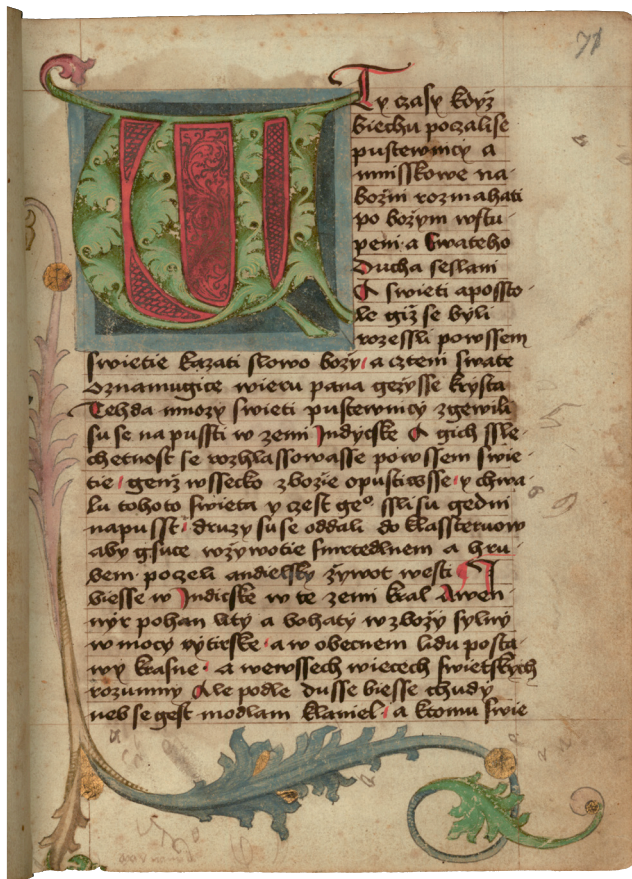 71
W Ty czasy kdyz
biechu poczalise
pustewnicy a
mnisskowe na-
bozni rozmahati
po bozym wstu-
peni · a Swateho
Ducha seslani
A swieti aposso-
le giz se byli
rozessli powssem
swietie kazati slowo bozy · a cztem swate
oznamugice wieru pana gezysse krysta
Tehda mnozy swieti pustewnicy zgewili
su se napussti w zemi Indycske A gich ssle-
chetnost se rozhlassowasse powssem swie-
tie · genz wssecko zbozie opustiwsse · y chwa-
lu tohoto swieta y czest geᵒ sslisu gedni
napusst · druzy suse oddali do klassteruow
aby gsuce wzywotie smrtedlnem a hru-
bem · poczeli andielsky zywot westi
biesse w Indicske w te zemi kral Awen-
nyr pohan lity a bohaty w zbozy sylny
w mocy rytirske · a w obecnem lidu posta-
wy krasne · a wewssech wiecech swietskych
rozumny Ale podle dusse biesse chudy
neb se gest modlam klaniel · a ktomu swie